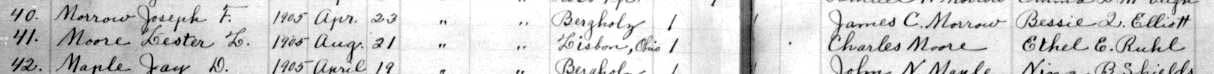 40. Morrow Joseph F. 1905 Apr. 23 " " Bergholz 1 1 James C. Morrow Bessie L. Elliott
41. Moore Lester L. 1905 Aug. 21 " " Lisbon, Ohio 1 Charles Moore Ethel E. Ruhl
42. Maple Jay D. 1905 April 19 " " Bergholz 1 1 John N. Maple Nina B. Shields